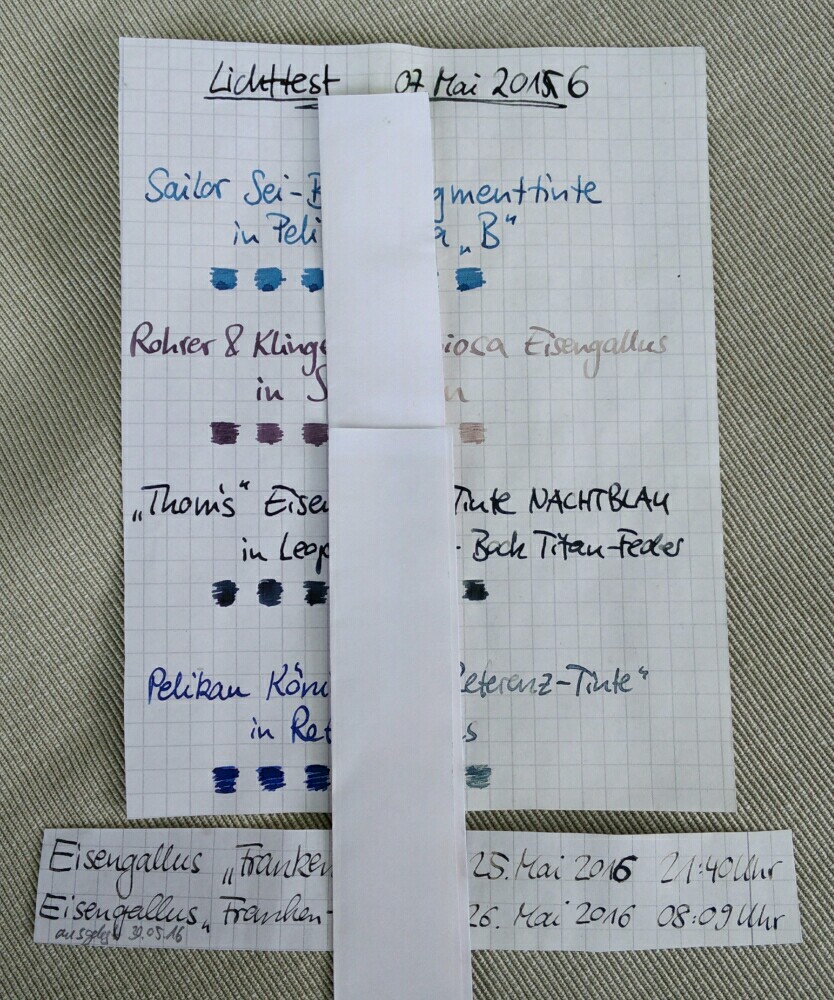 Lichttest 07 Mai 2016
Sailor Sei-B gmenttinte
in Peli a „B“
Rohrer & Klinge iosa Eisengallus
in S n
„Thoms“ Eisen Tinte NACHTBLAU
in Leop - Bock Titan-Feder
Pelikan Köni eferenz-Tinte“
in Ret s
Eisengallus „Franken 25. Mai 2016 21:40 Uhr
Eisengallus „Franken- 26. Mai 2016 08:09 Uhr
ausgelegt 30.05.16